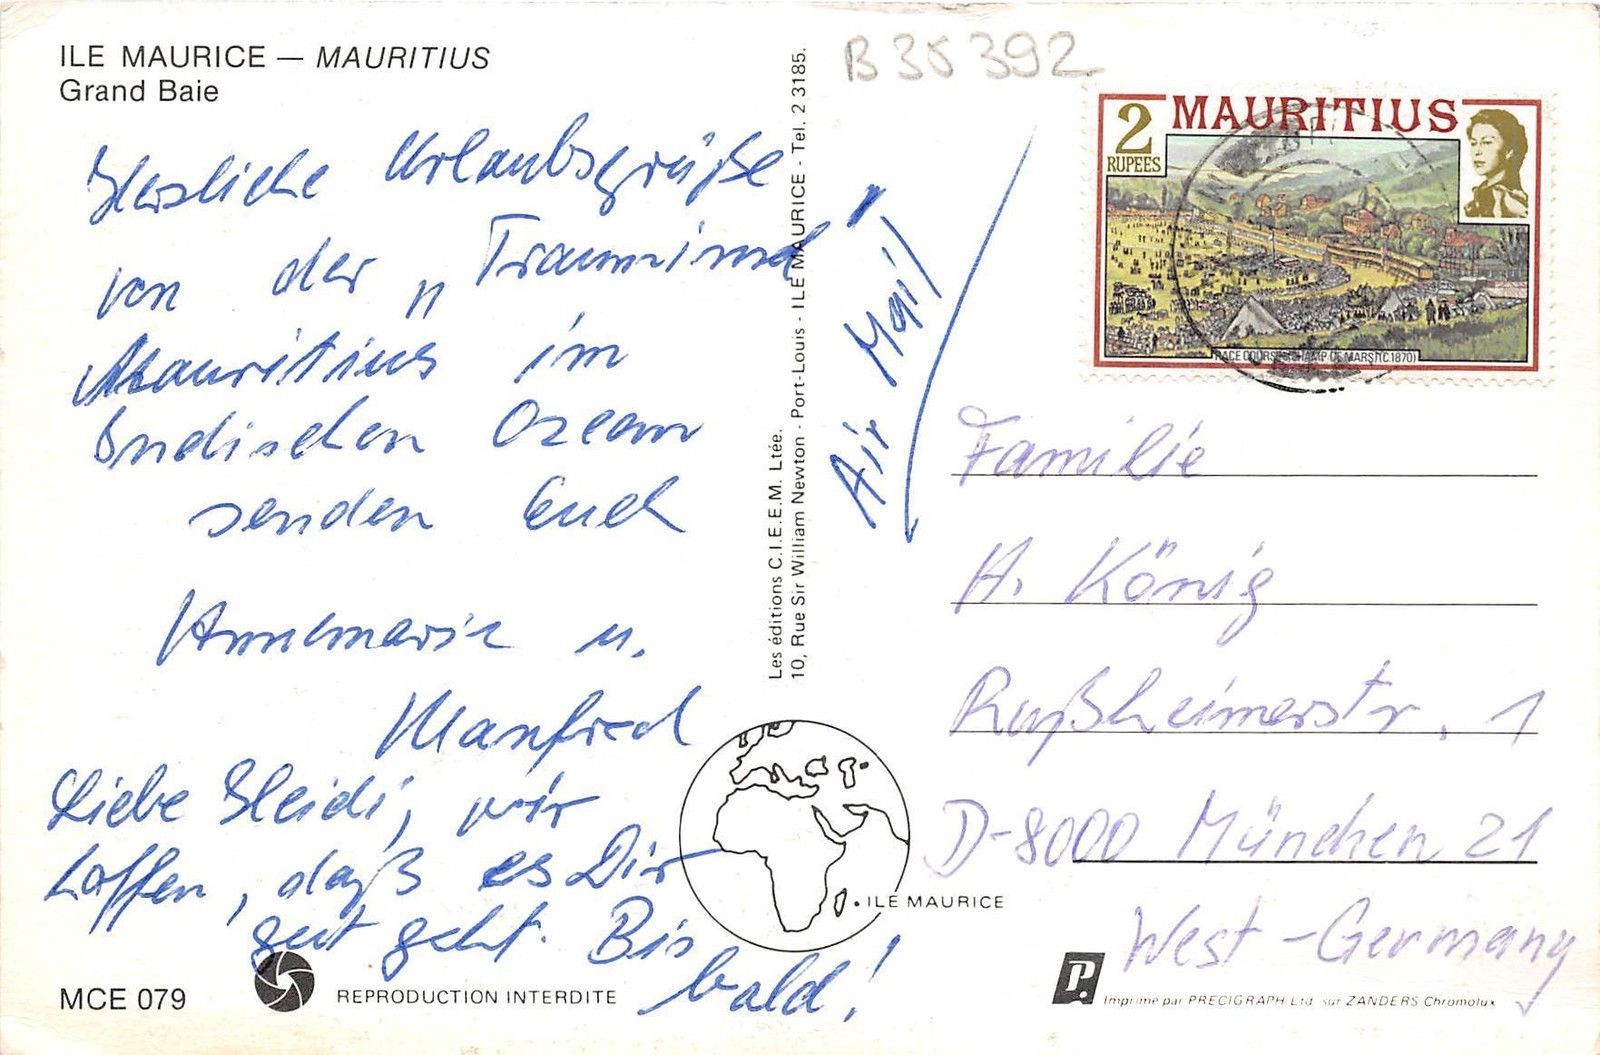 ILE MAURICE — MAURITIUS
Grand Baie
Herzliche Urlaubsgrüße
von der „Trauminsel"
Mauritius im
Indischen Ozean
senden Euch
Annemarie u.
Manfred
Liebe Heidi, wir
hoffen, daß es Dir
gut geht. Bis
bald!
MCE 079
REPRODUCTION INTERDITE
Les éditions C.I.E.E.M. Ltée.
10, Rue Sir William Newton - Port-Louis - ILE MAURICE - Tel. 2 3185.
B 35392
Air Mail
2
RUPEES
MAURITIUS
RACE COURSE (CHAMP DE MARS) (C.1870)
Familie
H. König
Rußheimerstr. 1
D-8000 München 21
West-Germany
ILE MAURICE
P.
Imprimé par PRECIGRAPH Ltd sur ZANDERS Chromolux